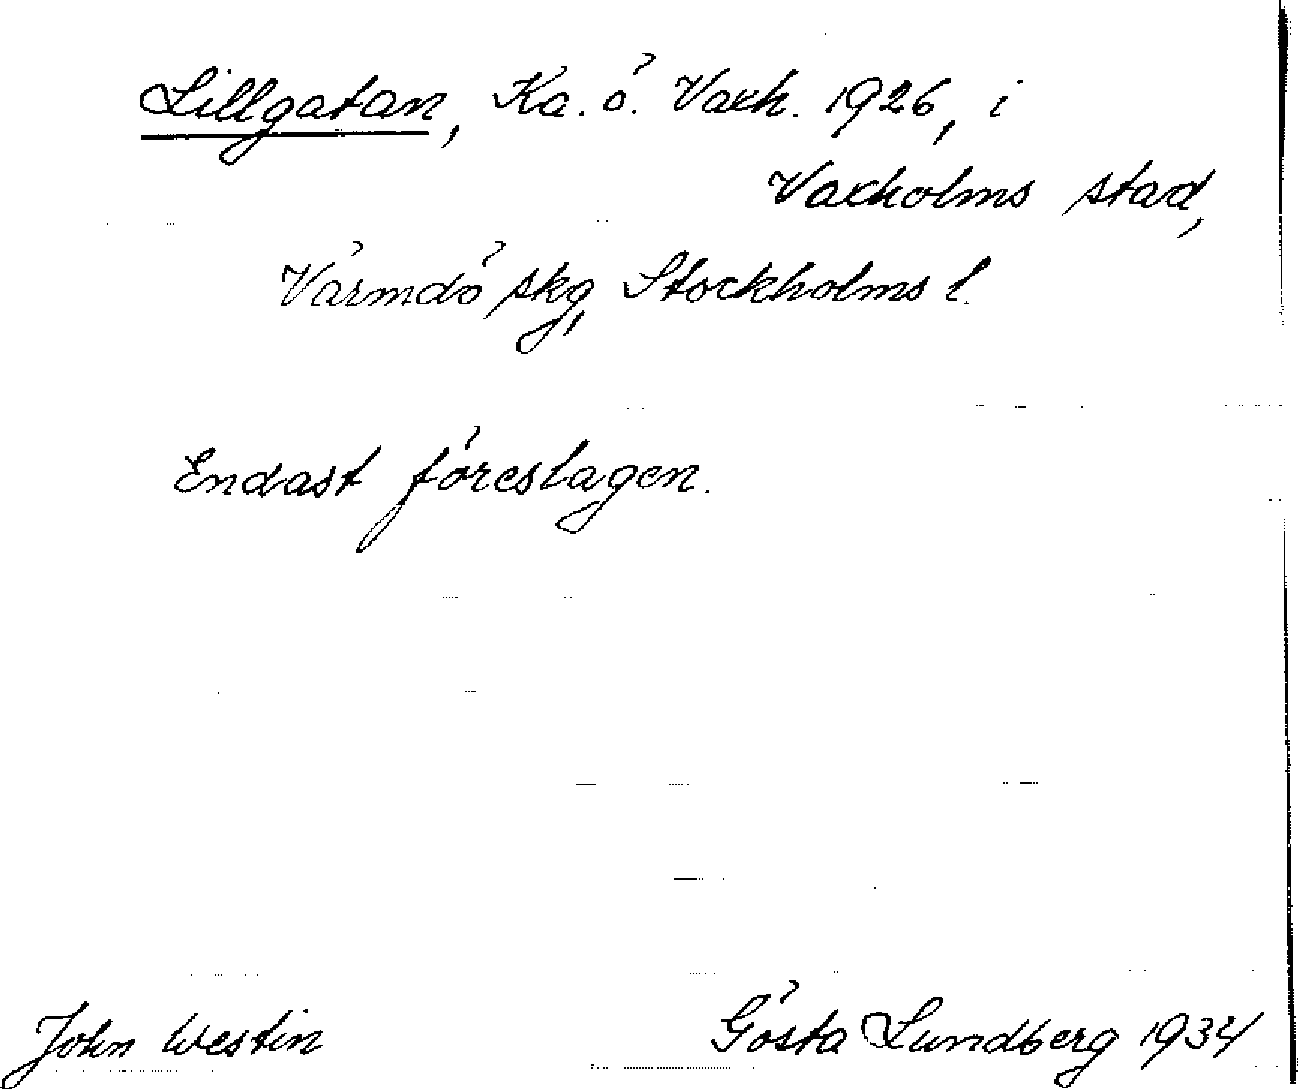 Lillgatan, Ka. ö. Vaxh. 1926, i
Vaxholms stad,
Värmdö skg, Stockholms l.
Endast föreslagen.
John Westin
Gösta Lundberg 1934